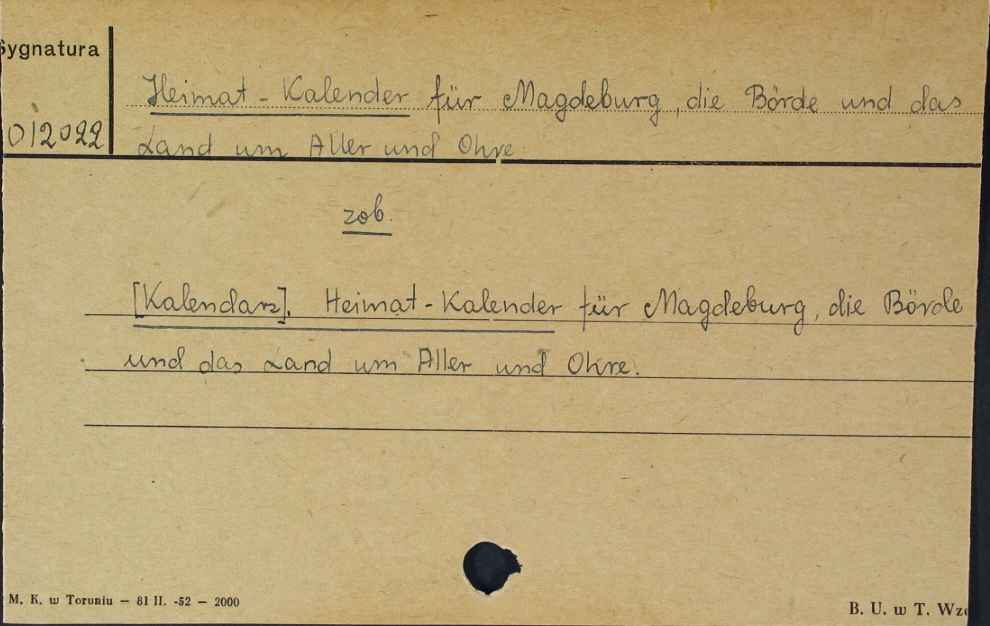 Sygnatura
Heimat-Kalender für Magdeburg, die Börde und das
012022
Land um Aller und Ohre
zob.
[Kalendarz]. Heimat-Kalender für Magdeburg, die Börde
und das Land um Aller und Ohre.
M. K. w Toruniu — 81 II. -52 — 2000
B. U. w T. Wz